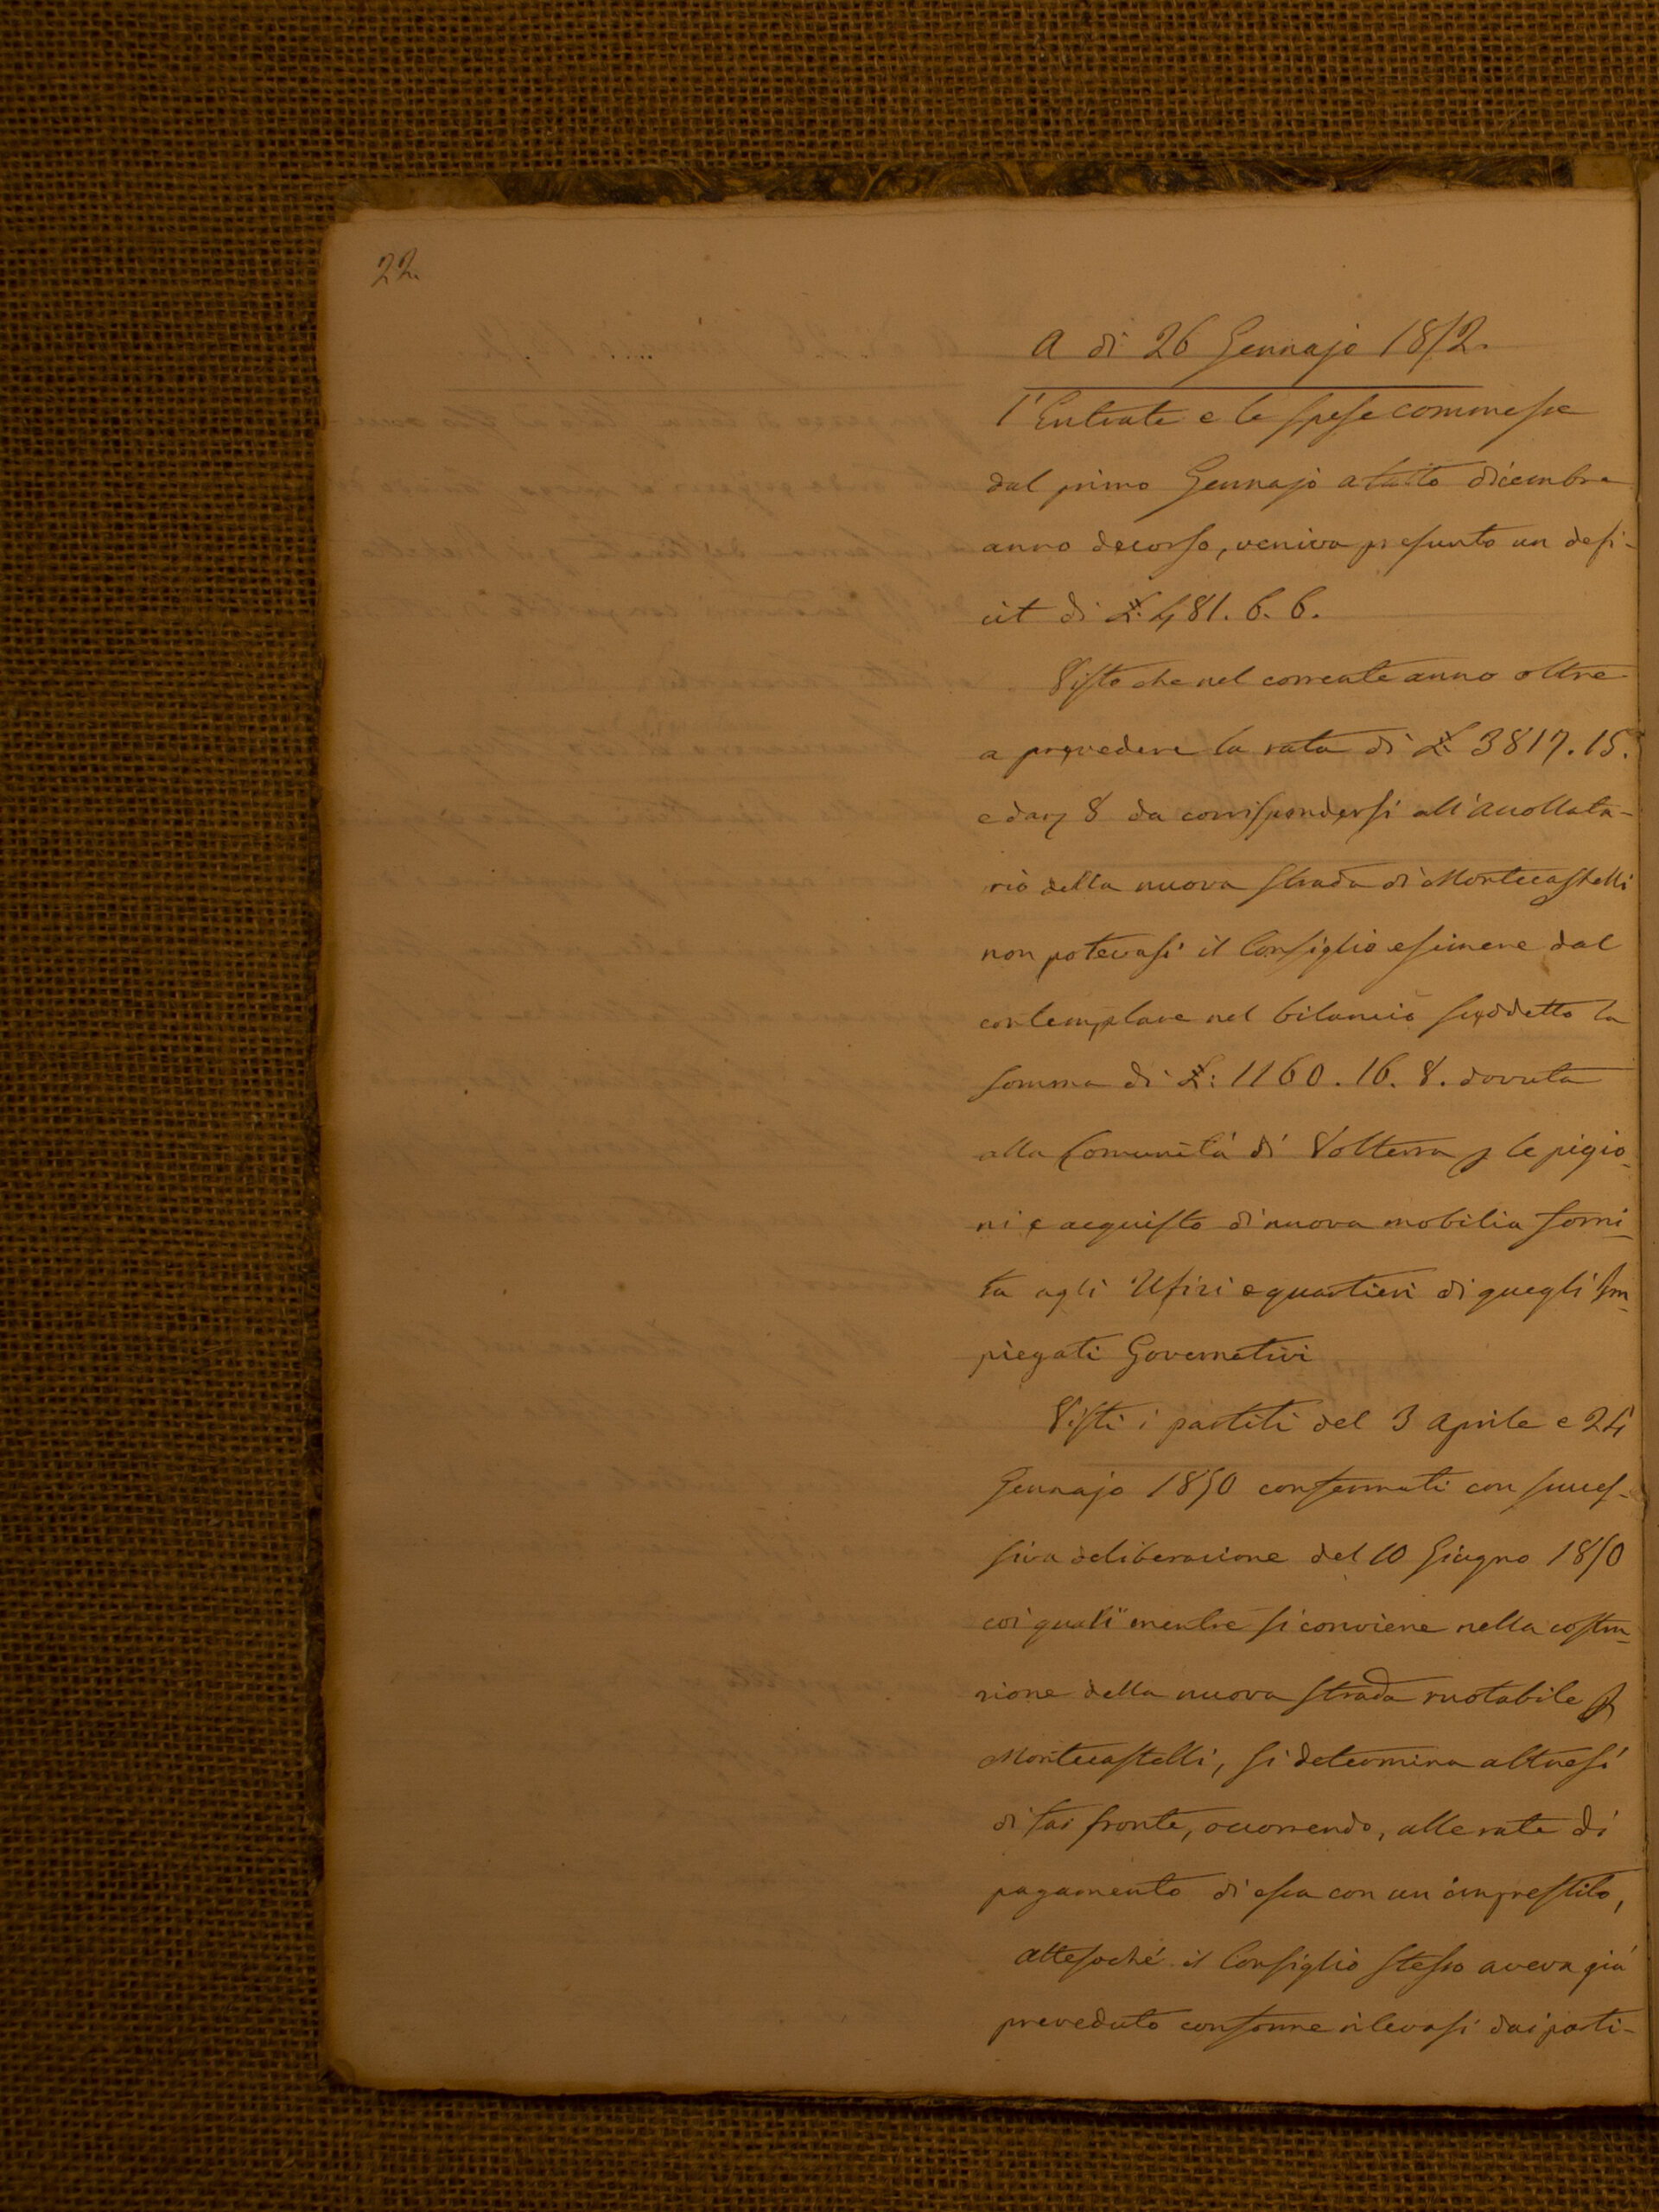 22.
A di 26 Gennajo 1852.
l'Entrate e le spese commesse
dal primo Gennajo a tutto dicembre
anno decorso, veniva presunto un defi-
cit di £. 481. 6. 6.
Visto che nel corrente anno oltre
a provedere la rata di £ 3817. 15.
e da 8 da corrispondersi all'accollata-
rio della nuova strada di Montecastelli
non potevasi il Consiglio esimere dal
contemplare nel bilancio suddetto la
somma di £: 1160. 16. 8. dovuta
alla Comunità di Volterra p le pigio-
ni e acquisto di nuova mobilia forni-
ta agli Ufizi e quartieri di quegli Im-
piegati Governativi
Visti i partiti del 3 Aprile e 24
Gennajo 1850 confermati con succes-
siva deliberazione del 10 Giugno 1850
coi quali mentre si conviene nella costru-
zione della nuova strada ruotabile p
Montecastelli, si determina altresì
di far fronte, occorrendo, alle rate di
pagamento di essa con un imprestito,
attesochè il Consiglio stesso aveva già
preveduto conforme rilevasi dai parti-